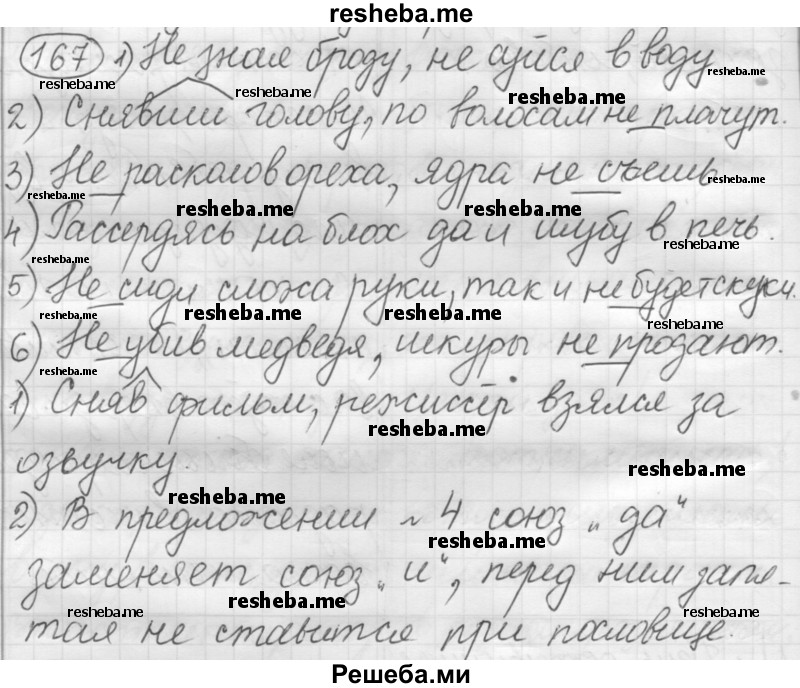 resheba.me
167 1) Не зная броду, не суйся в воду
resheba.me resheba.me resheba.me
resheba.me
2) Снявши голову, по волосам не плачут.
3) Не расколов ореха, ядра не съешь
resheba.me resheba.me
resheba.me resheba.me
4) Рассердясь на блох да и шубу в печь.
resheba.me resheba.me
5) Не сиди сложа руки, так и не будет скуки.
resheba.me resheba.me resheba.me
resheba.me
6) Не убив медведя, шкуры не продают.
resheba.me
1) Сняв фильм, режиссёр взялся за
resheba.me
озвучку.
resheba.me
resheba.me
2) В предложении № 4 союз „да“
resheba.me
заменяет союз „и“, перед ним запя-
resheba.me resheba.me resheba.me
тая не ставится при пословице.
Решеба.ми